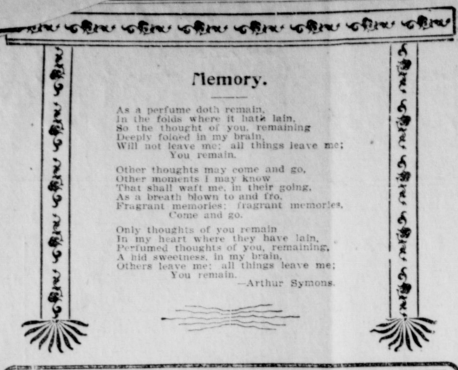 Memory.
As a perfume doth remain,
In the folds where it hath lain,
So the thought of you, remaining
Deeply folded in my brain,
Will not leave me; all things leave me;
You remain.
Other thoughts may come and go,
Other moments I may know
That shall waft me, in their going,
As a breath blown to and fro.
Fragrant memories; fragrant memories,
Come and go.
Only thoughts of you remain
In my heart where they have lain,
Perfumed thoughts of you, remaining,
A hid sweetness, in my brain,
Others leave me; all things leave me;
You remain.
—Arthur Symons.